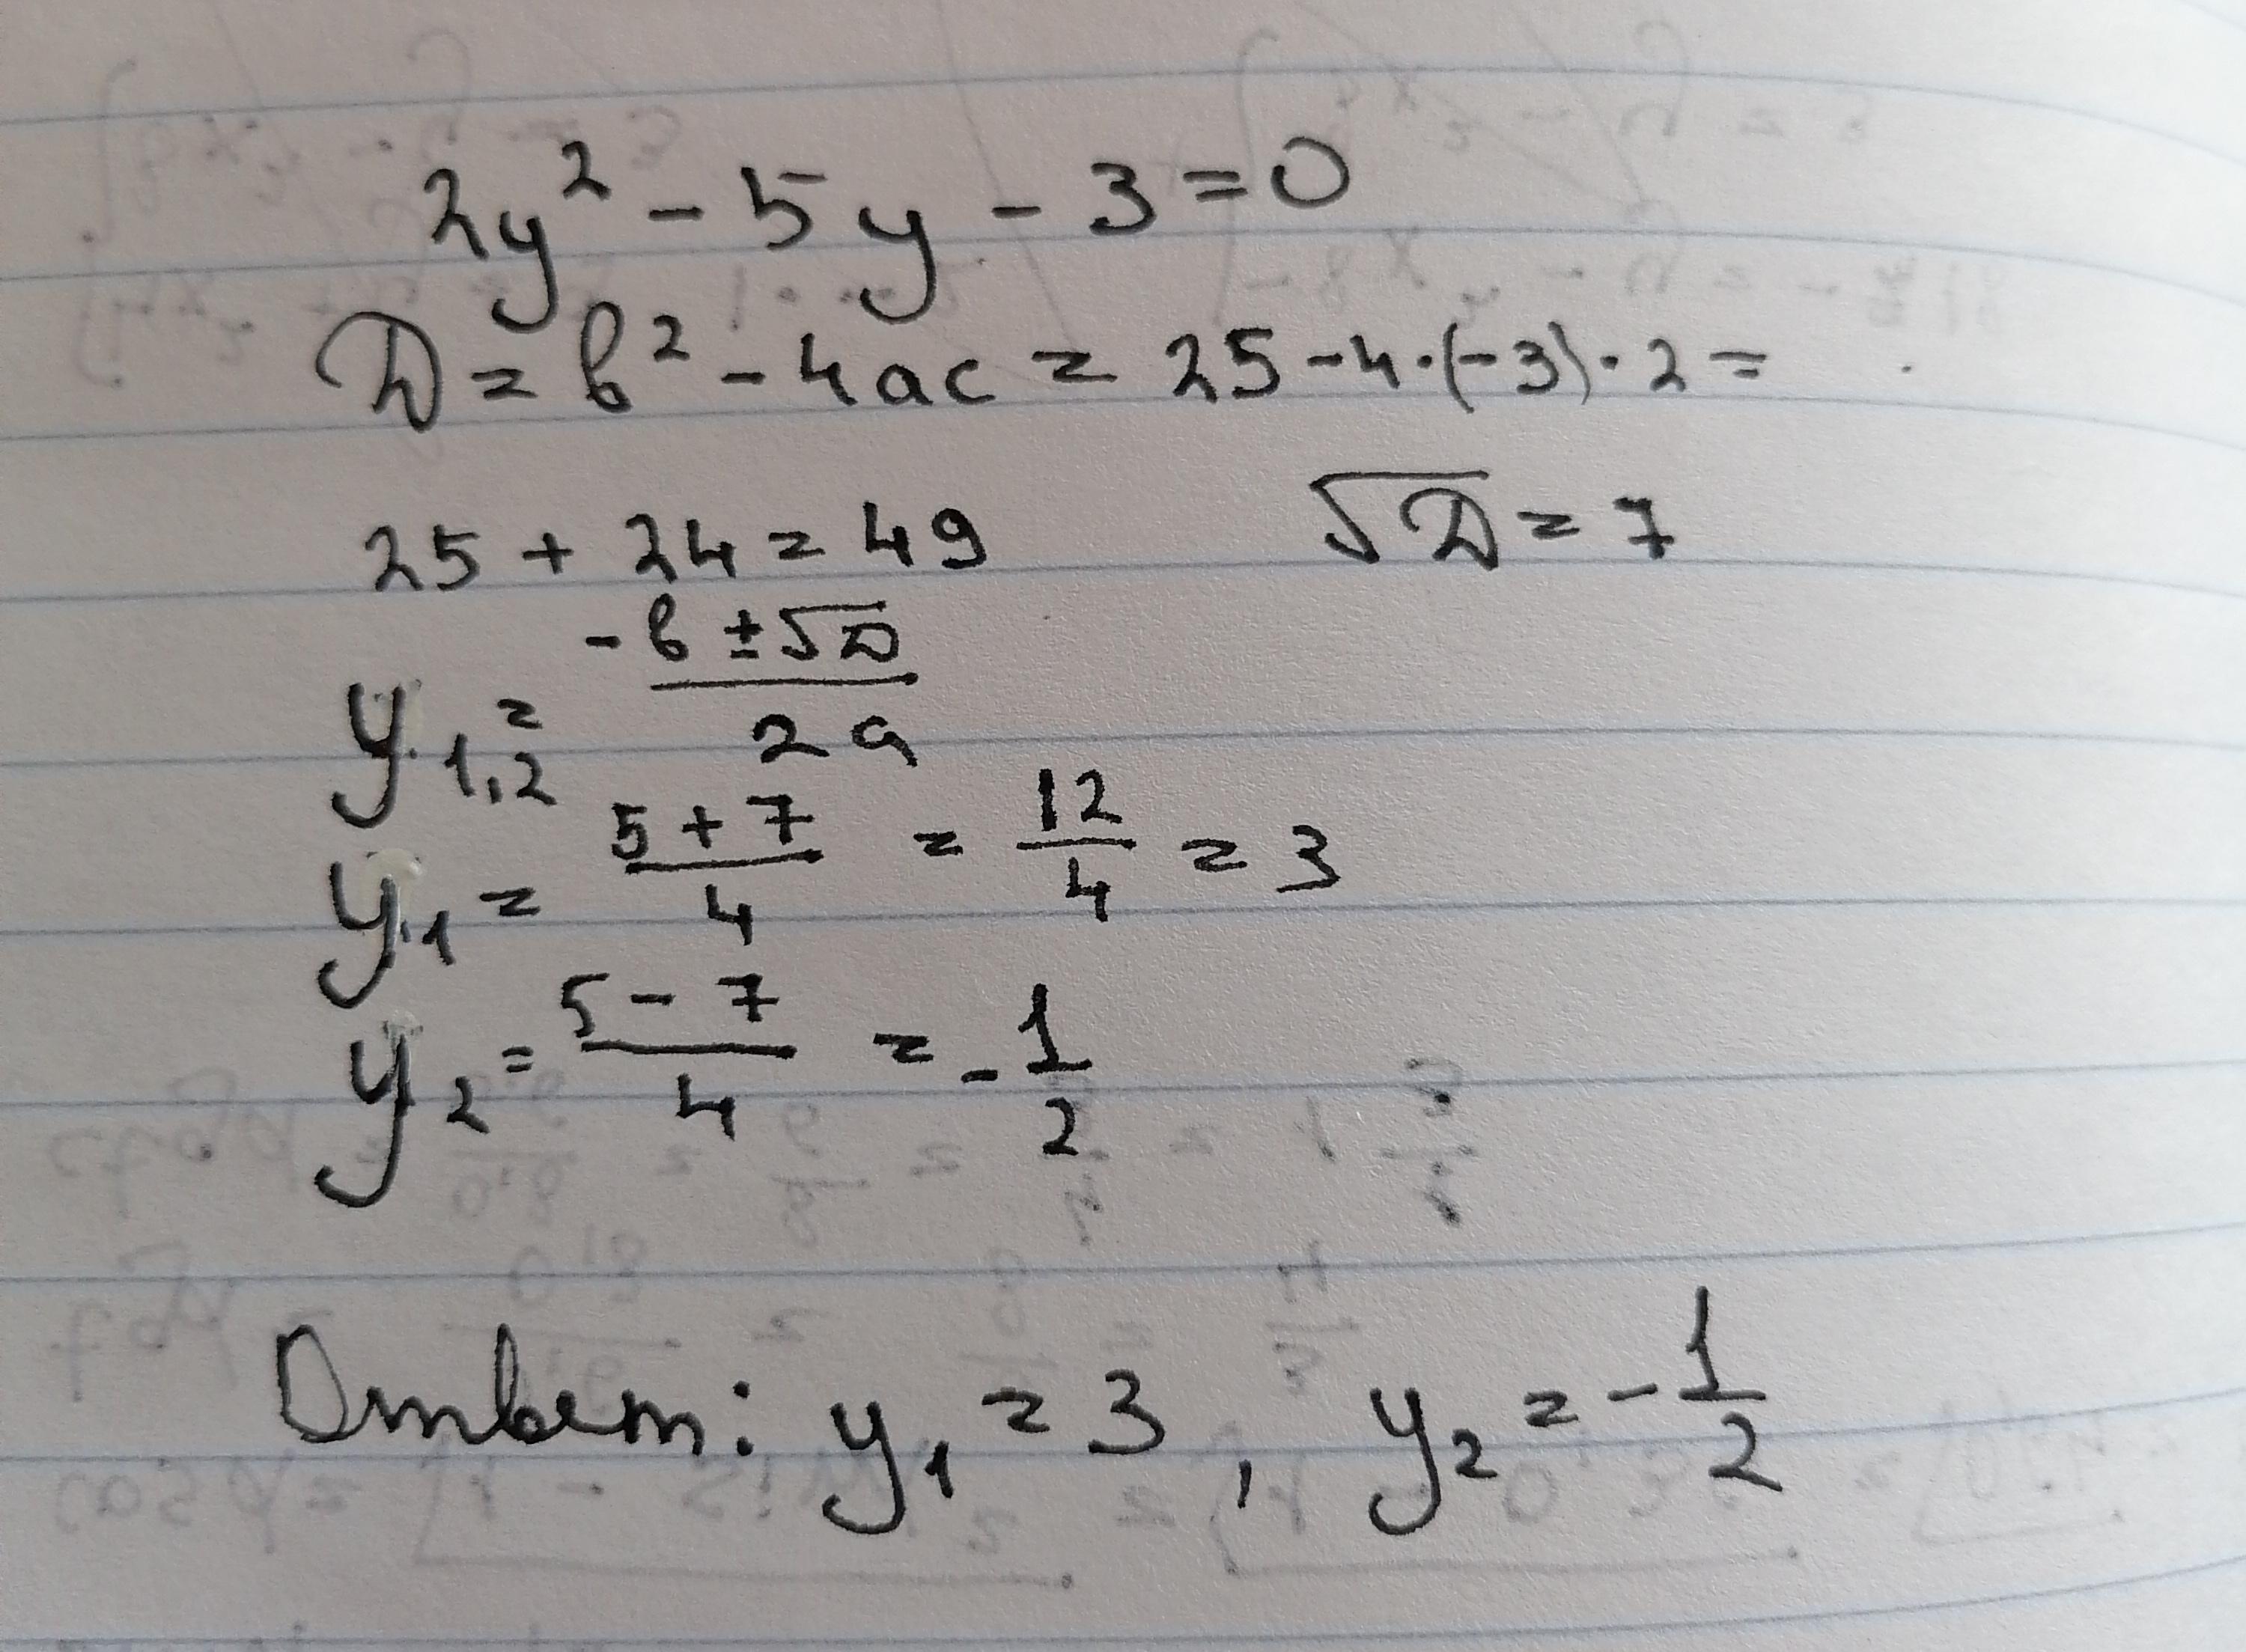 2y² - 5y - 3 = 0
D = b² - 4ac = 25 - 4·(-3)·2 =
25 + 24 = 49 √D = 7
y₁,₂ = (-b ± √D)/2a
y₁ = (5 + 7)/4 = 12/4 = 3
y₂ = (5 - 7)/4 = -1/2
Ответ: y₁ = 3, y₂ = -1/2